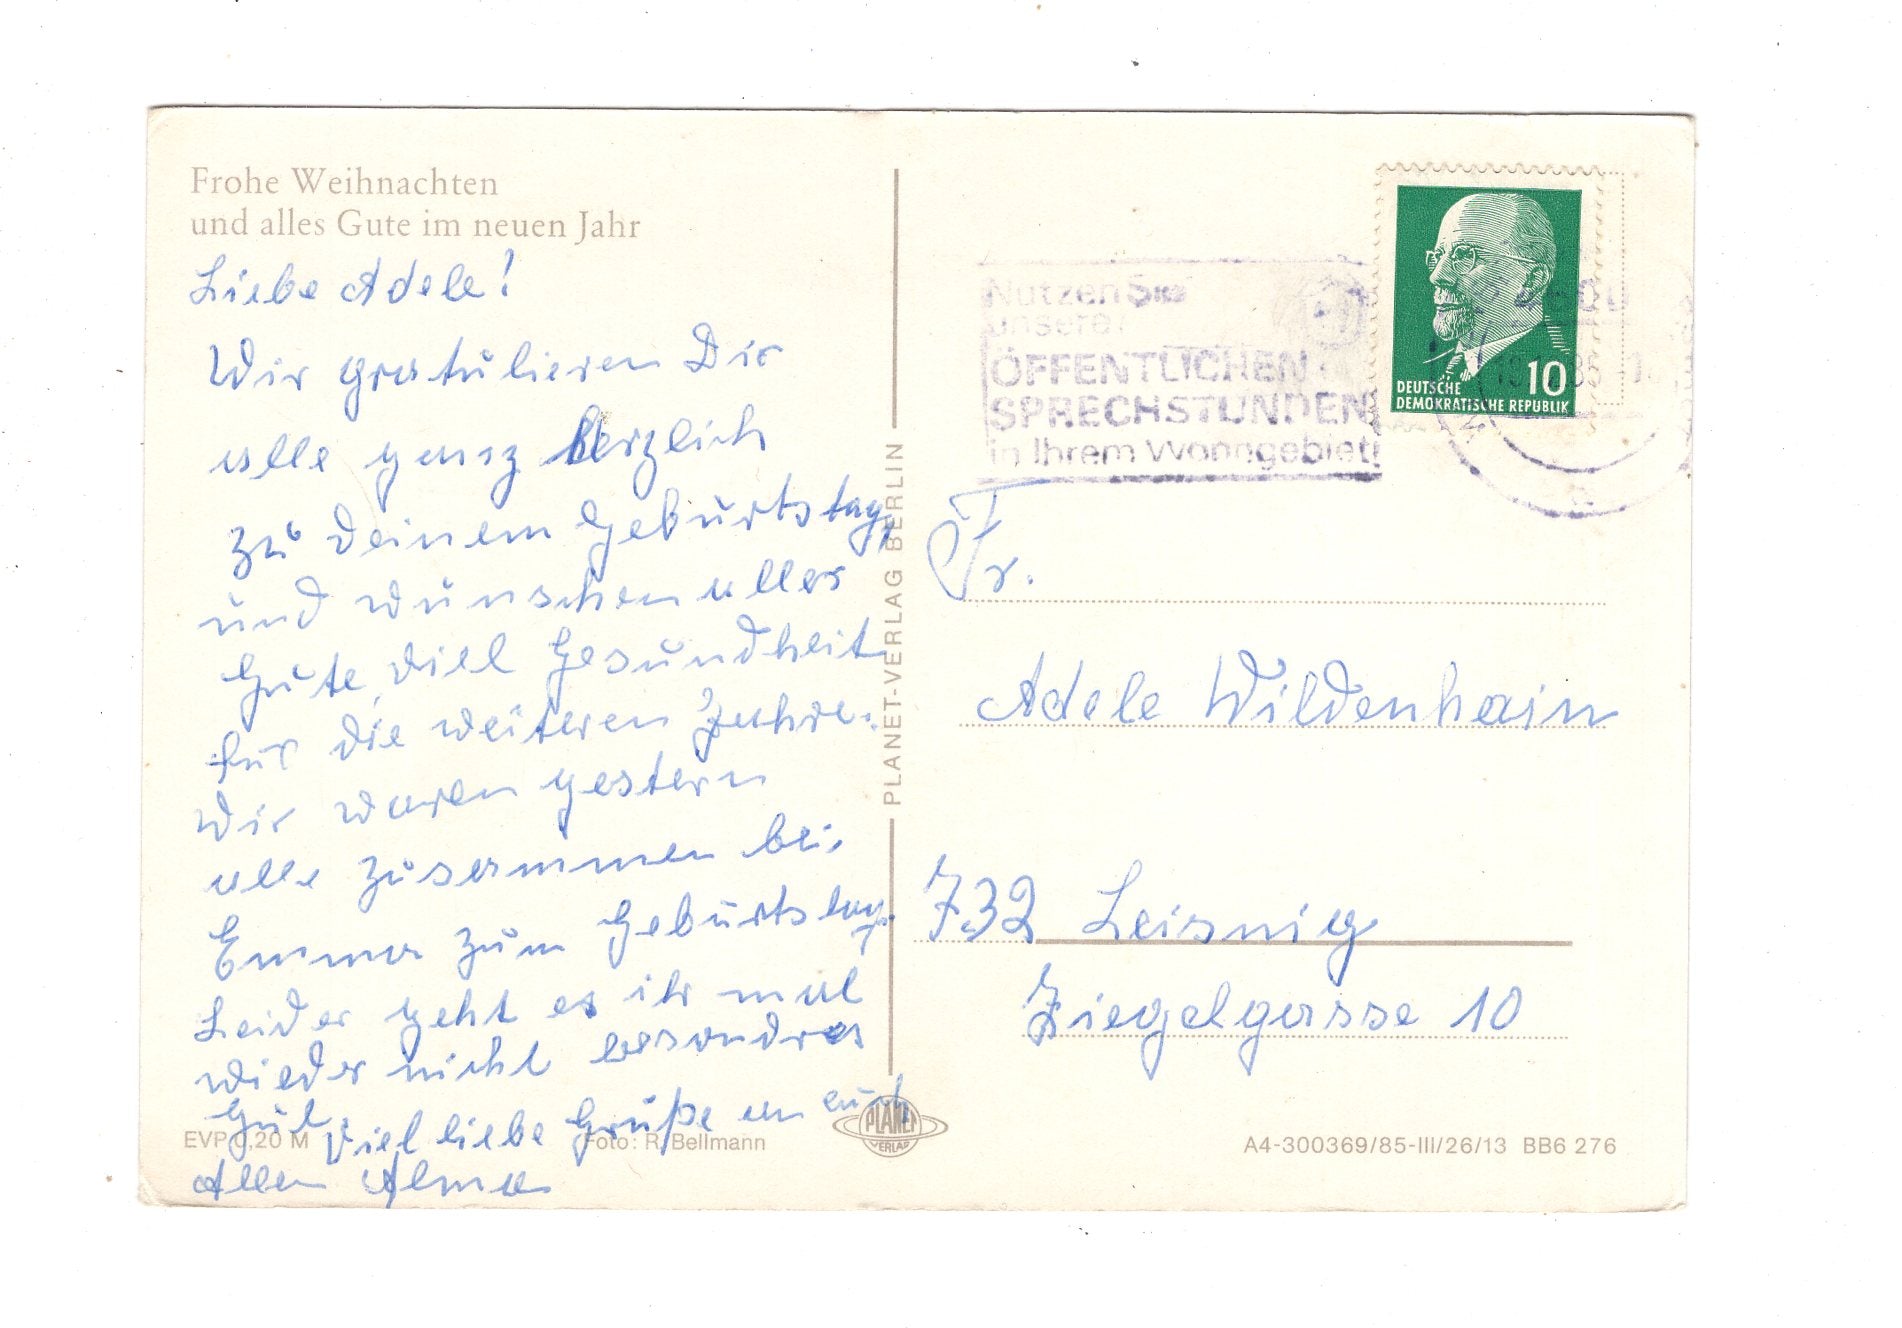 Frohe Weihnachten
und alles Gute im neuen Jahr
Liebe Adele!
Wir gratulieren Dir
alle ganz herzlich
zu deinem Geburtstag,
und wünschen alles
Gute, viel Gesundheit
für die weiteren Jahre.
Wir waren gestern
alle zusammen bei
Emma zum Geburtstag.
Leider geht es ihr mal
wieder nicht besondres
gut. Viel liebe Grüße an euch
Allen Alma
EVP 0,20 M Foto: R. Bellmann
PLANET-VERLAG BERLIN
PLANET
VERLAG
Nutzen Sie
unsere
ÖFFENTLICHEN
SPRECHSTUNDEN
in Ihrem Wohngebiet!
10
DEUTSCHE
DEMOKRATISCHE REPUBLIK
Fr.
Adele Wildenhain
732 Leisnig
Ziegelgasse 10
A4-300369/85-III/26/13 BB6 276